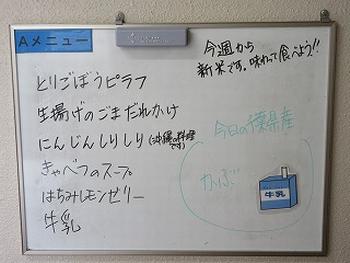 Aメニュー
今週から
新米です。味わって食べよう!!
とりごぼうピラフ
生揚げのごまだれかけ
にんじんしりしり(沖縄の料理です)
きゃべつのスープ
はちみつレモンゼリー
牛乳
今日の千葉県産
かぶ
牛乳